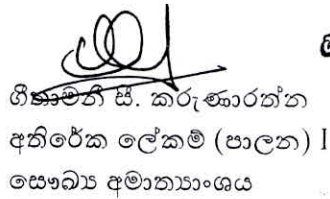 ගීතාමනී සී. කරුණාරත්න
අතිරේක ලේකම් (පාලන) I
සෞඛ්‍ය අමාත්‍යාංශය